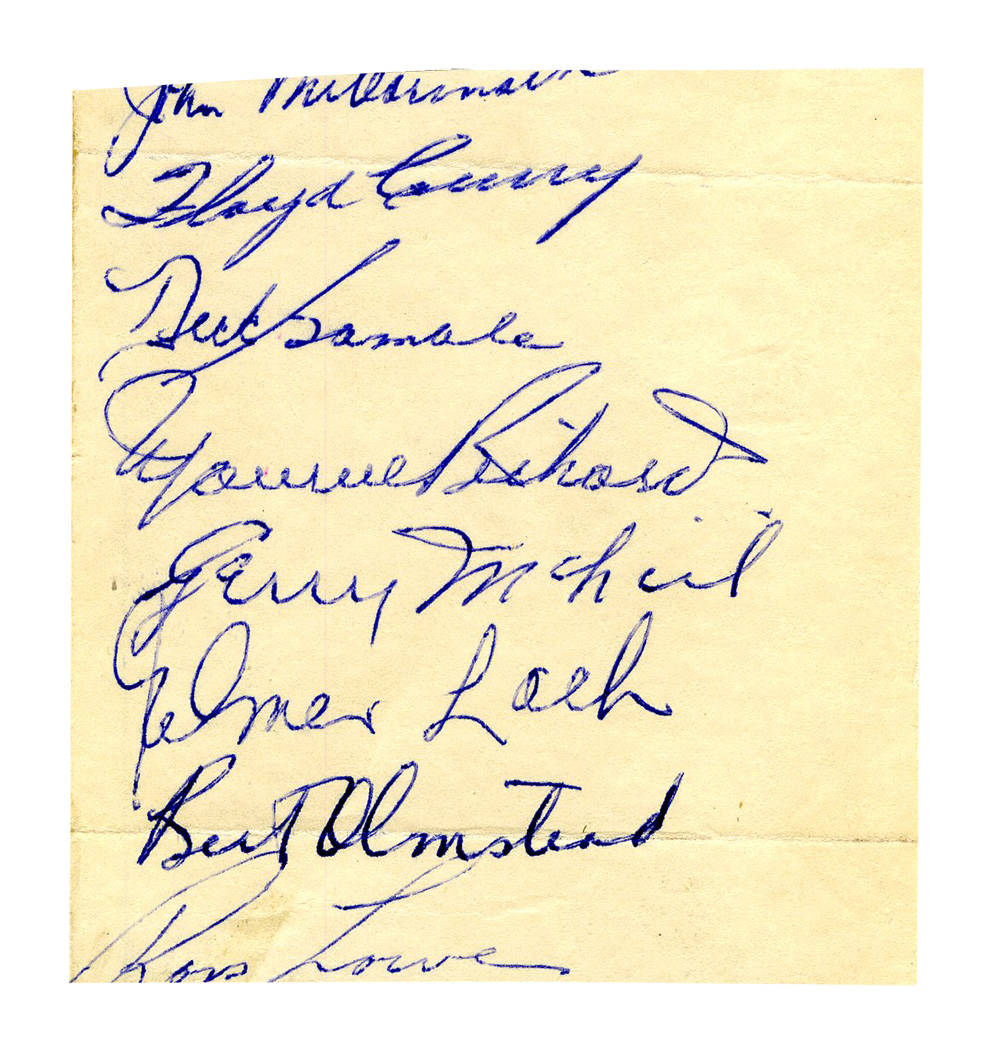 John McCormack
Floyd Curry
Dick Gamble
Maurice Richard
Gerry McNeil
Elmer Lach
Bert Olmstead
Ross Lowe